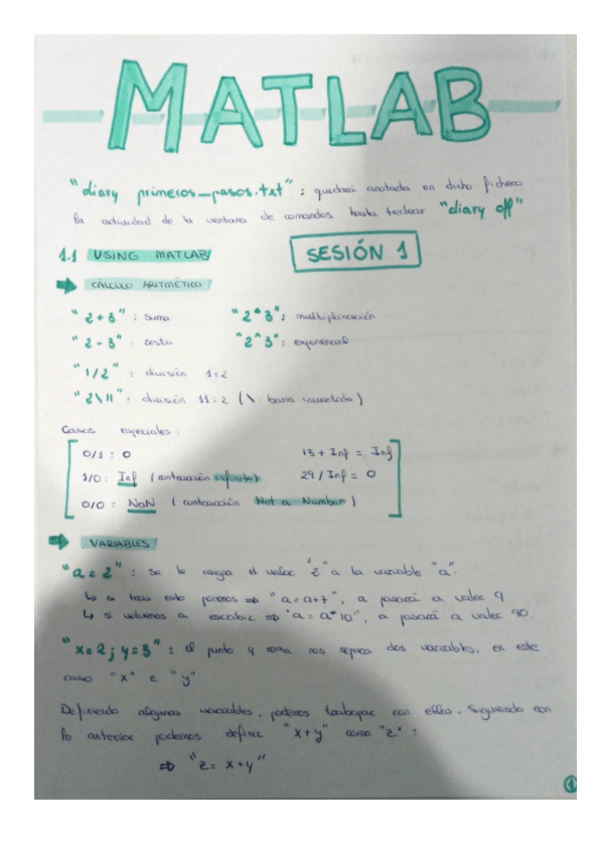 MATLAB
"diary primeros_pasos.txt" : quedará anotada en dicho fichero
la actividad de la ventana de comandos hasta teclear "diary off"
1.1 USING MATLAB
SESIÓN 1
➡ CÁLCULO ARITMÉTICO
"2+3" : suma "2*3" : multiplicación
"2-3" : resta "2^3" : exponencial
"1/2" : división 1:2
"2\11" : división 11:2 (\ : barra invertida)
Casos especiales:
0/1 : 0 13 + Inf = Inf
1/0 : Inf (contracción infinito) 29 / Inf = 0
0/0 : NaN (contracción Not a Number)
➡ VARIABLES
"a = 2" : se le asigna el valor "2" a la variable "a".
↳ si tras esto ponemos ⇒ "a=a+7", a pasará a valer 9
↳ si volvemos a escribir ⇒ "a = a*10", a pasará a valer 90.
"x=2; y=3" : el punto y coma nos separa dos variables, en este
caso "x" e "y"
Definiendo algunas variables, podemos trabajar con ellas. Siguiendo con
lo anterior podemos definir "x+y" como "z" :
⇒ "z= x+y"
1